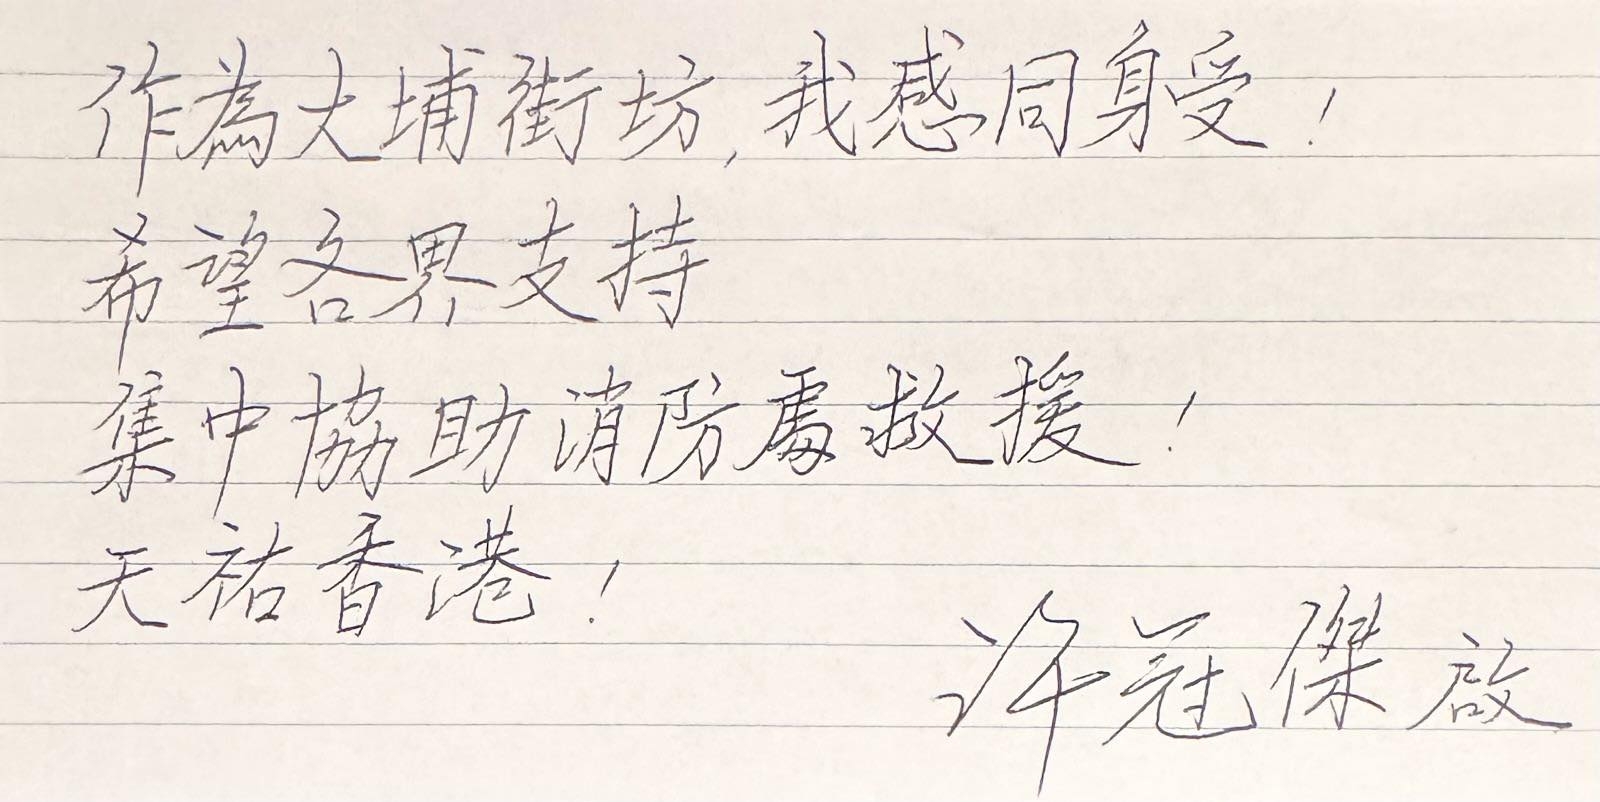 作為大埔街坊,我感同身受!
希望各界支持
集中協助消防處救援!
天祐香港!
許冠傑啟